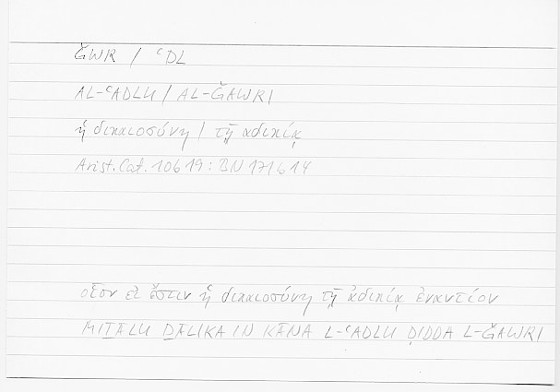 ǦWR / ʿDL
AL-ʿADLU / AL-ǦAWRI
ἡ δικαιοσύνη / τῇ ἀδικίᾳ
Arist. Cat. 10b19 : BN 171b14
οἷον εἰ ἔστιν ἡ δικαιοσύνη τῇ ἀδικίᾳ ἐναντίον
MIṮĀLU ḎĀLIKA IN KĀNA L-ʿADLU ḌIDDA L-ǦAWRI